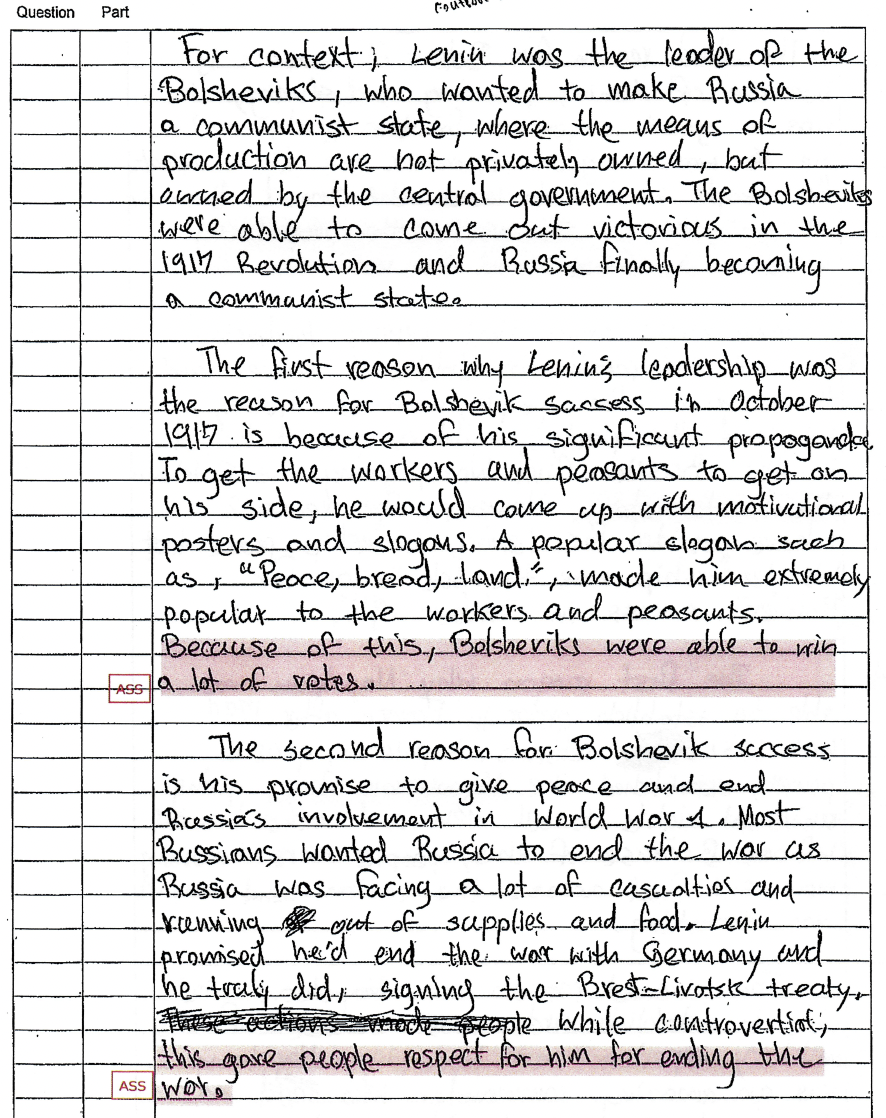 Question Part
For context; Lenin was the leader of the
Bolsheviks, who wanted to make Russia
a communist state, where the means of
production are not privately owned, but
owned by the central government. The Bolsheviks
were able to come out victorious in the
1917 Revolution and Russia finally becoming
a communist state.
The first reason why Lenin's leadership was
the reason for Bolshevik success in October
1917 is because of his significant propoganda.
To get the workers and peasants to get on
his side, he would come up with motivational
posters and slogans. A popular slogan such
as, "Peace, bread, land.", made him extremely
popular to the workers and peasants.
Because of this, Bolsheviks were able to win
ASS a lot of votes.
The second reason for Bolshevik success
is his promise to give peace and end
Russia's involvement in World War 1. Most
Russians wanted Russia to end the war as
Russia was facing a lot of casualties and
running out of supplies and food. Lenin
promised he'd end the war with Germany and
he truly did, signing the Brest-Livotsk treaty.
These actions made people While controvertial,
this gave people respect for him for ending the
ASS war.